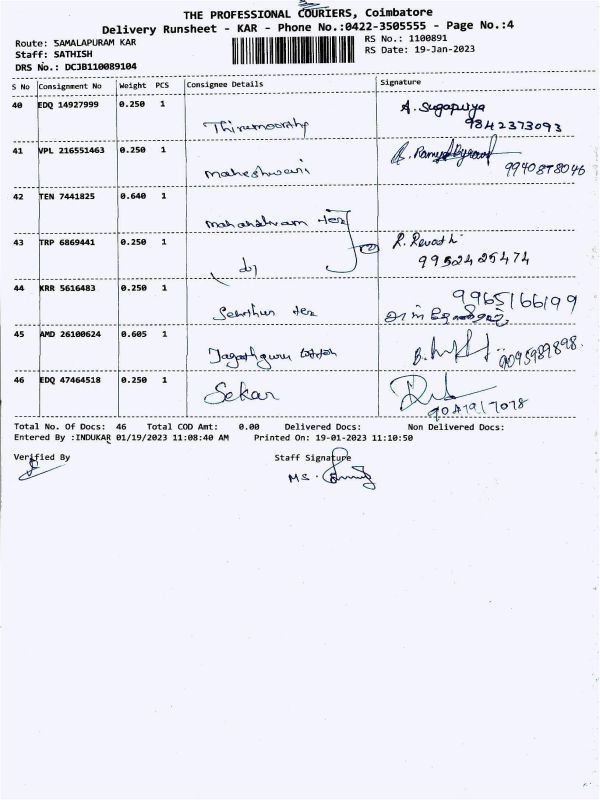 THE PROFESSIONAL COURIERS, Coimbatore
Delivery Runsheet - KAR - Phone No.:0422-3505555 - Page No.:4
Route: SAMALAPURAM KAR
RS No.: 1100891
Staff: SATHISH
RS Date: 19-Jan-2023
DRS No.: DCJB110089104
S No Consignment No Weight PCS Consignee Details Signature
40 EDQ 14927999 0.250 1 Thirumoorthy A. Sugapriya
9842373093
41 VPL 216551463 0.250 1 maheshwari
9940878046
42 TEN 7441825 0.640 1 Tex
43 TRP 6869441 0.250 1 R. Revathi
9952425474
44 KRR 5616483 0.250 1 Tex 9965166199
45 AMD 26100624 0.605 1 Jagathguru B.
9095989898.
46 EDQ 47464518 0.250 1 Sekar
Total No. Of Docs: 46 Total COD Amt: 0.00 Delivered Docs: Non Delivered Docs:
Entered By :INDUKAR 01/19/2023 11:08:40 AM Printed On: 19-01-2023 11:10:50
Verified By Staff Signature
MS.